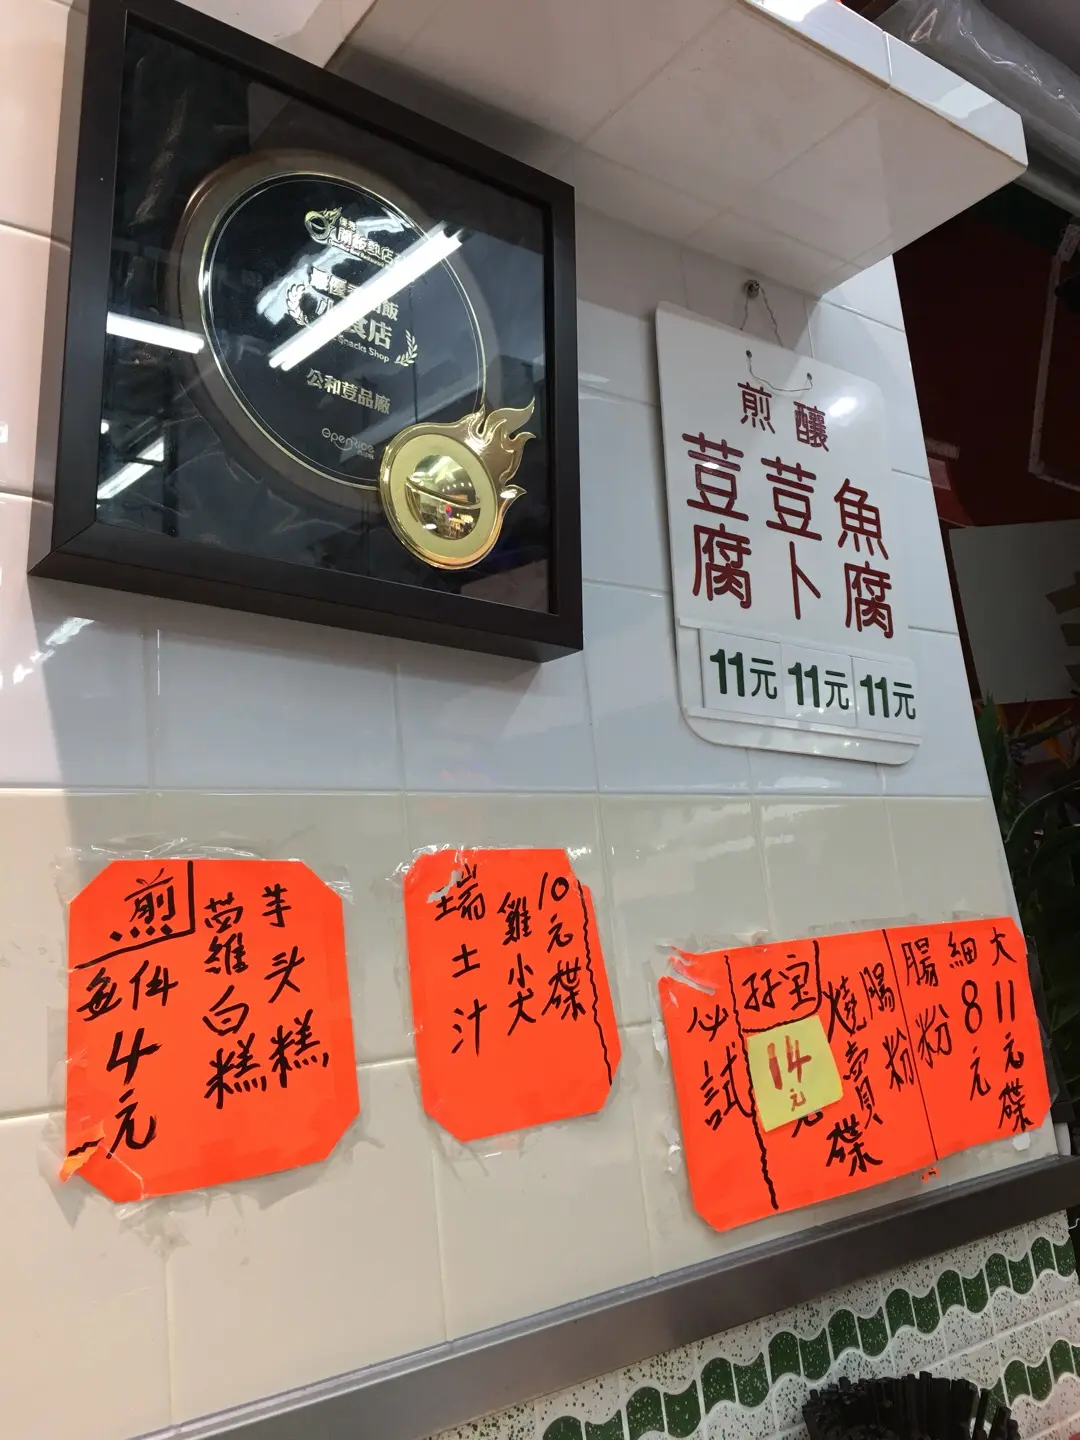 開飯熱店
最優
開飯
小食店
Snacks Shop
公和荳品廠
OpenRice
煎 釀
荳腐
荳卜
魚腐
11元 11元 11元
煎
芋頭糕
蘿白糕
每件
4元
10元碟
雞小尖
瑞士汁
大 11元碟
細 8元
腸粉
腸粉
燒賣碟
孖宝
14元
必試